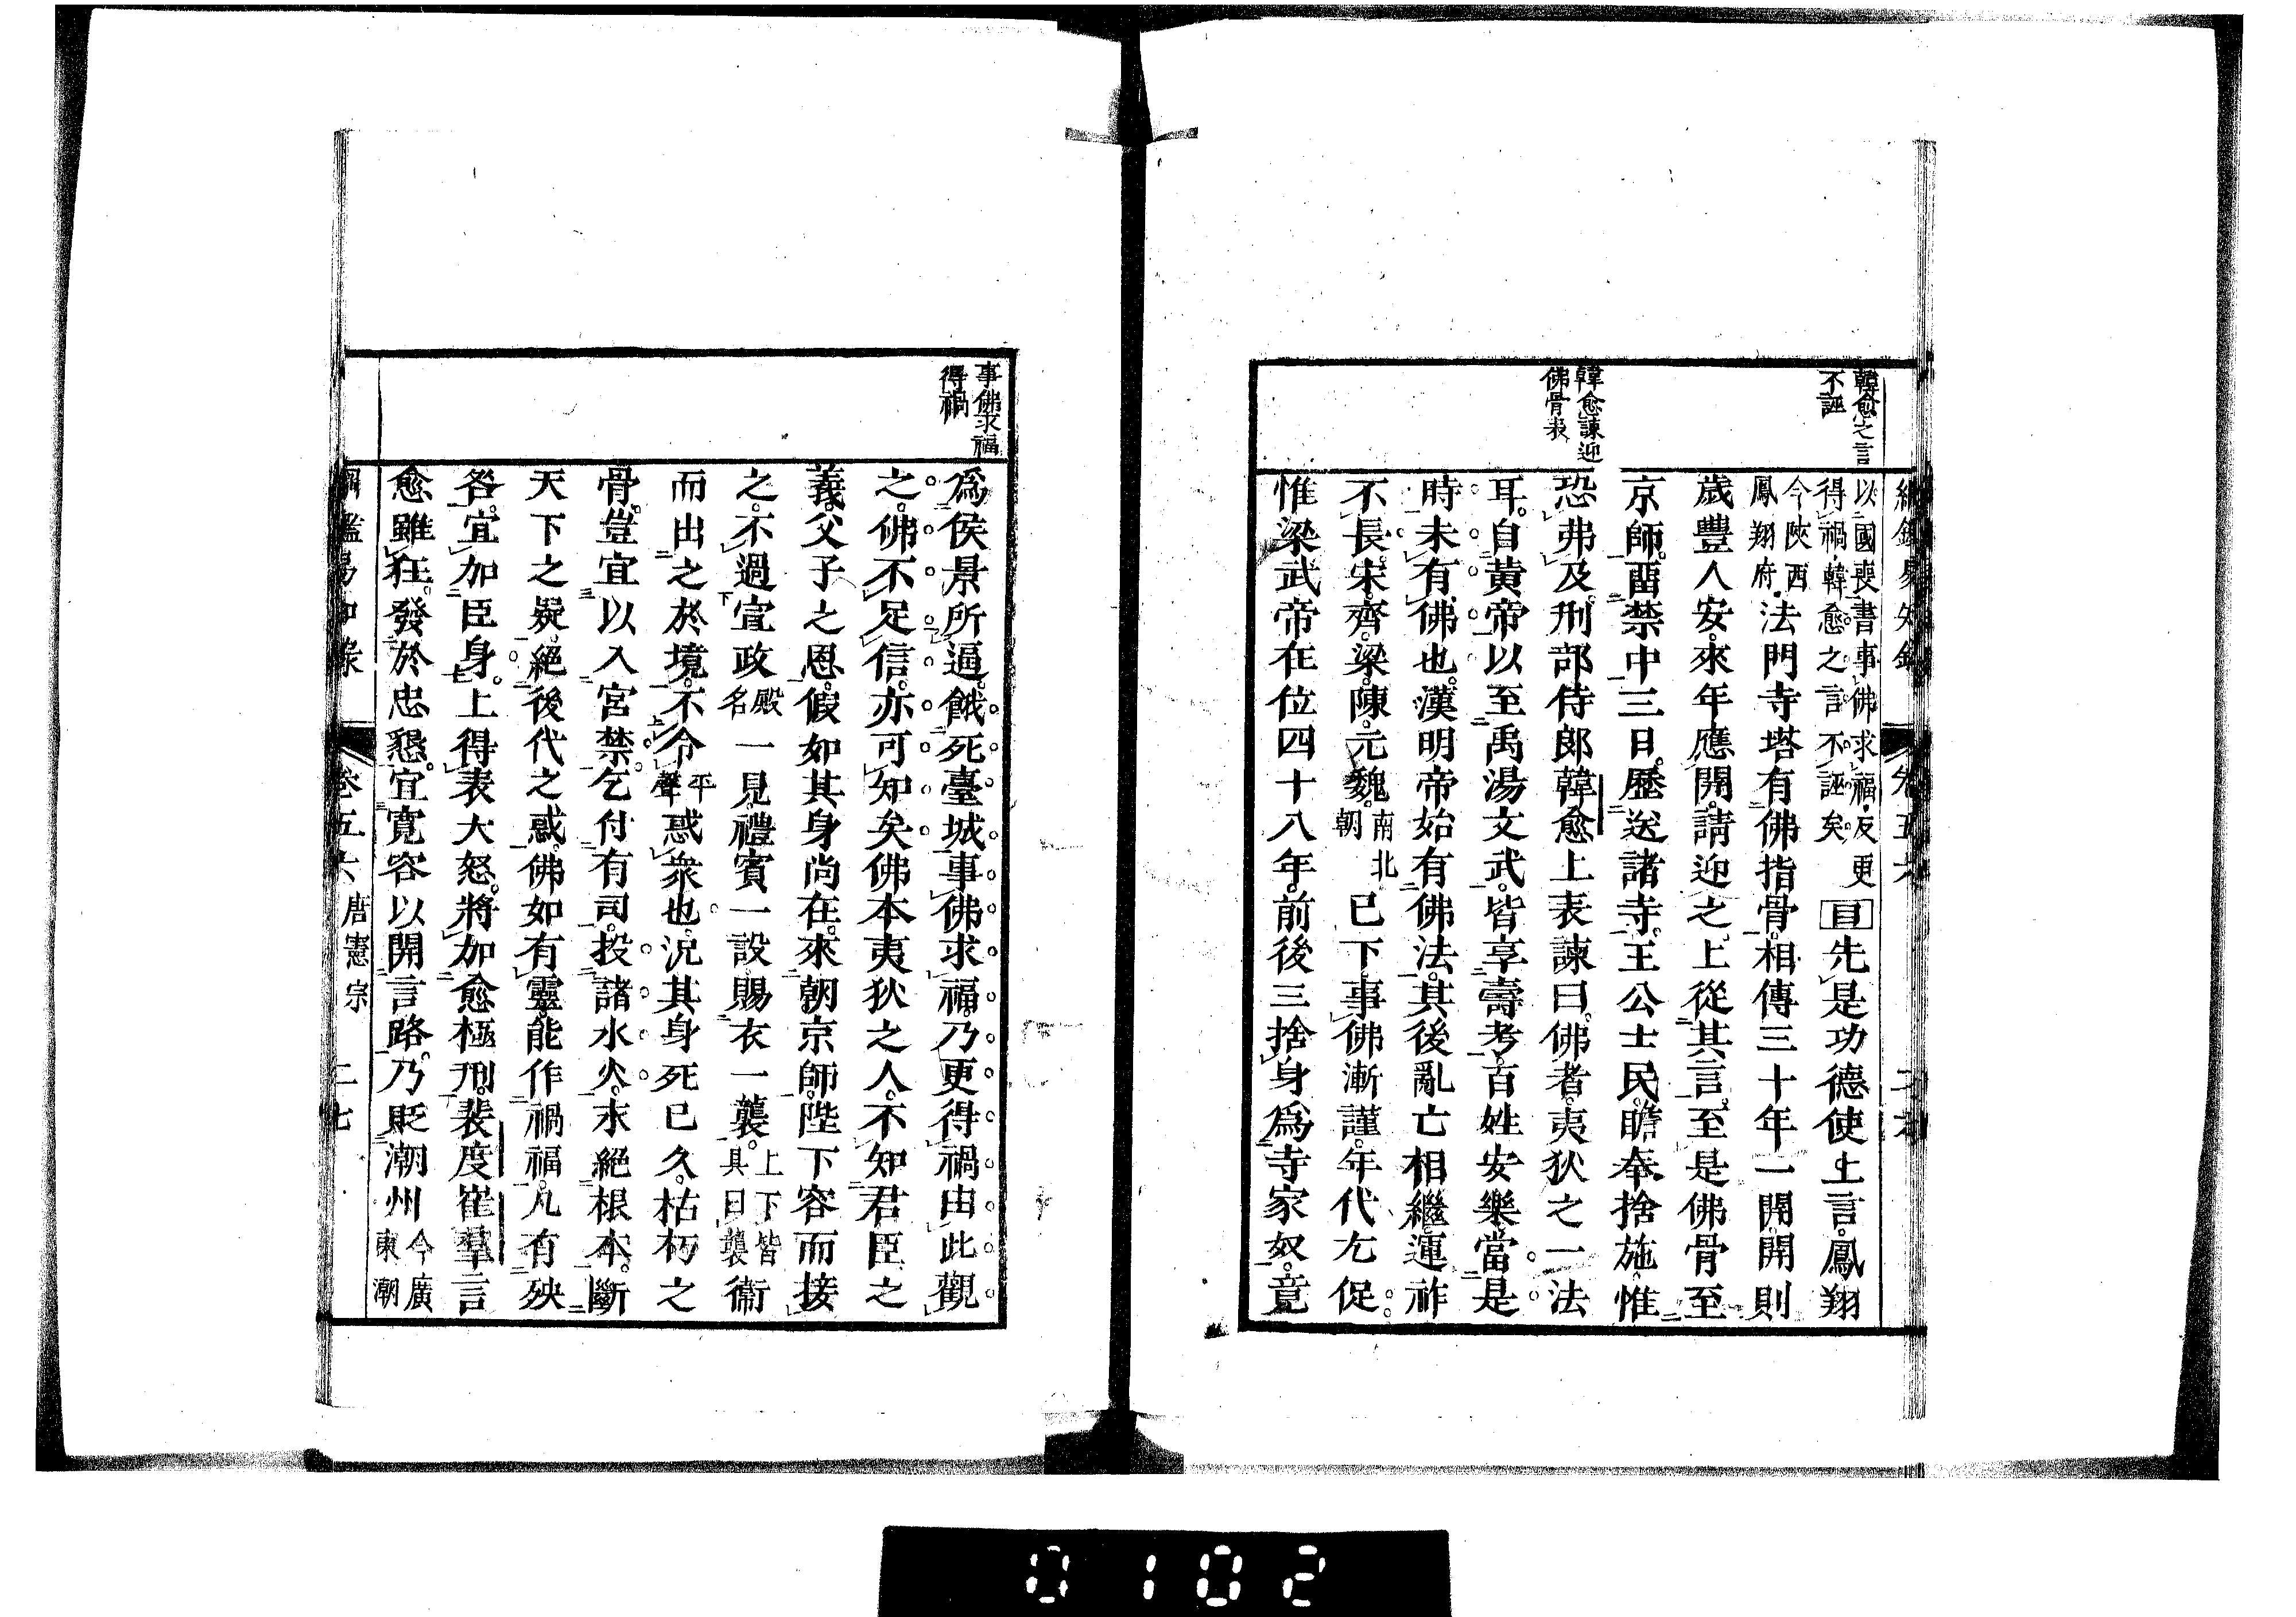 韓愈之言
不誣
以國喪書事佛求福反更
得禍韓愈之言不誣矣
目先是功德使上言鳳翔
今陝西
鳳翔府
法門寺塔有佛指骨相傳三十年一開開則
歲豐人安來年應開請迎之上從其言至是佛骨至
京師畱禁中三日歷送諸寺王公士民瞻奉捨施惟
韓愈諫迎
佛骨表
恐弗及刑部侍郎韓愈上表諫曰佛者夷狄之一法
耳自黃帝以至禹湯文武皆享壽考百姓安樂當是
時未有佛也漢明帝始有佛法其後亂亡相繼運祚
不長宋齊梁陳元魏
南北
朝
已下事佛漸謹年代尤促
惟梁武帝在位四十八年前後三捨身爲寺家奴竟
事佛求福
得禍
爲侯景所逼餓死臺城事佛求福乃更得禍由此觀
之佛不足信亦可知矣佛本夷狄之人不知君臣之
義父子之恩假如其身尚在來朝京師陛下容而接
之不過宣政
殿
名
一見禮賓一設賜衣一襲
上下皆
具曰襲
衞
而出之於境不令
平
聲
惑衆也況其身死已久枯朽之
骨豈宜以入宮禁乞付有司投諸水火永絕根本斷
天下之疑絕後代之惑佛如有靈能作禍福凡有殃
咎宜加臣身上得表大怒將加愈極刑裴度崔羣言
愈雖狂發於忠懇宜寬容以開言路乃貶潮州
今廣
東潮
綱鑑易知錄 卷五六 唐憲宗 二七